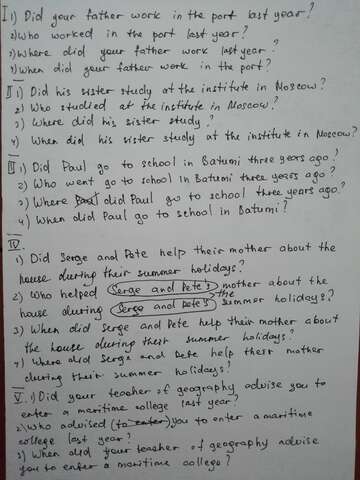 I 1) Did your father work in the port last year?
2) Who worked in the port last year?
3) Where did your father work last year?
4) When did your father work in the port?
II 1) Did his sister study at the institute in Moscow?
2) Who studied at the institute in Moscow?
3) Where did his sister study?
4) When did his sister study at the institute in Moscow?
III 1) Did Paul go to school in Batumi three years ago?
2) Who went go to school in Batumi three years ago?
3) Where Paul did Paul go to school three years ago?
4) When did Paul go to school in Batumi?
IV
1) Did Serge and Pete help their mother about the
house during their summer holidays?
2) Who helped Serge and Pete's mother about the
house during Serge and Pete's the summer holidays?
3) When did Serge and Pete help their mother about
the house during their summer holidays?
4) Where did Serge and Pete help their mother
during their summer holidays?
V. 1) Did your teacher of geography advise you to
enter a maritime college last year?
2) Who advised (to enter) you to enter a maritime
college last year?
3) When did your teacher of geography advise
you to enter a maritime college?